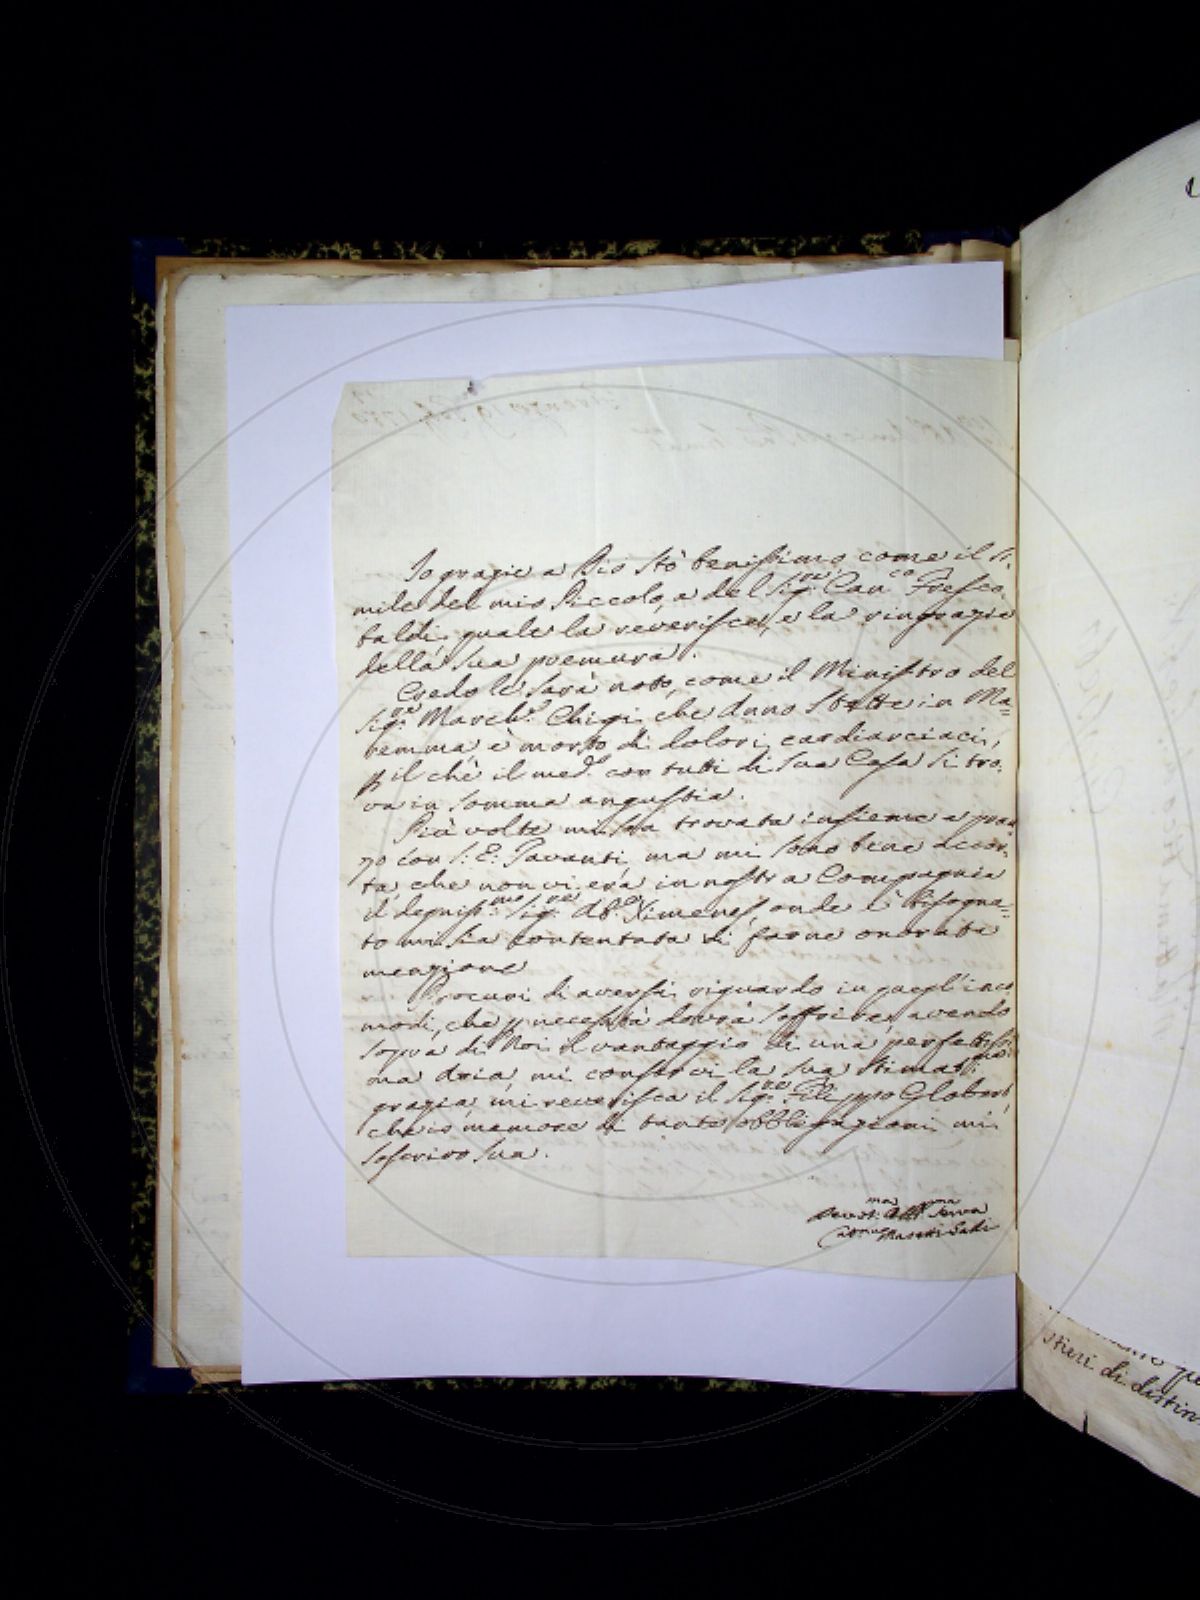 Io grazie a Dio stò benissimo, come il si-
mile del mio Piccolo, a del Sig.re Cav.co Fresco-
baldi, quale la reverisce, e la ringrazia
della sua premura.
Credo le sarà noto, come il Ministro del
Sig.re March.e Chigi, che stette in Ma=
remma, è morto di dolori
il chè il med.o con tutti di sua Casa si tro-
va in somma angustia.
Più volte mi son trovata insieme a pran-
zo con S: E: Pavanti, ma mi sono bene accor-
ta, che non vi era in nostra Compagnia
il degniss.mo Sig.re Ab.e Ximenes, onde è bisogna=
to mi sia contentata di farne onorata
menzione
Procuri di aversi riguardo in quegl'inco
modi, che p necessità dovrà soffrire, avendo
sopra di Noi il vantaggio di una perfettissi-
ma aria, mi conservi la sua stimatiss.ma
grazia, mi reverisca il Sig.re Filippo
che io memore di tante obbligazioni mi
soscrivo sua.
Devot: Obb.ma Serva
stieri di distin